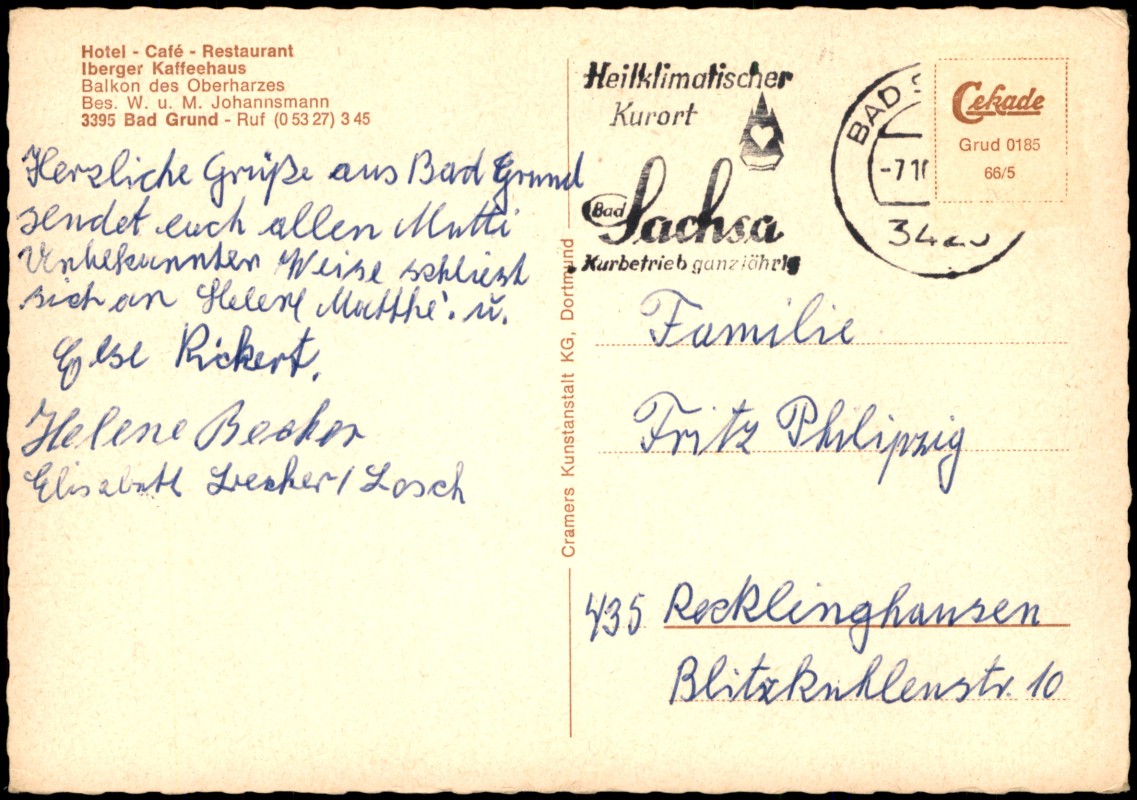 Hotel - Café - Restaurant
Iberger Kaffeehaus
Balkon des Oberharzes
Bes. W. u. M. Johannsmann
3395 Bad Grund - Ruf (0 53 27) 3 45
Herzliche Grüße aus Bad Grund
sendet euch allen Mutti
Unbekannter Weise schliest
sich an Helene Matthé. u.
Else Rickert.
Helene Becker
Elisabeth Losch
Cramers Kunstanstalt KG, Dortmund
Heilklimatischer
Kurort
Bad Sachsa
Kurbetrieb ganzjährig
BAD S
-7.10
3423
Cekade
Grud 0185
66/5
Familie
Fritz Philipzig
435 Recklinghausen
Blitzkuhlenstr. 10